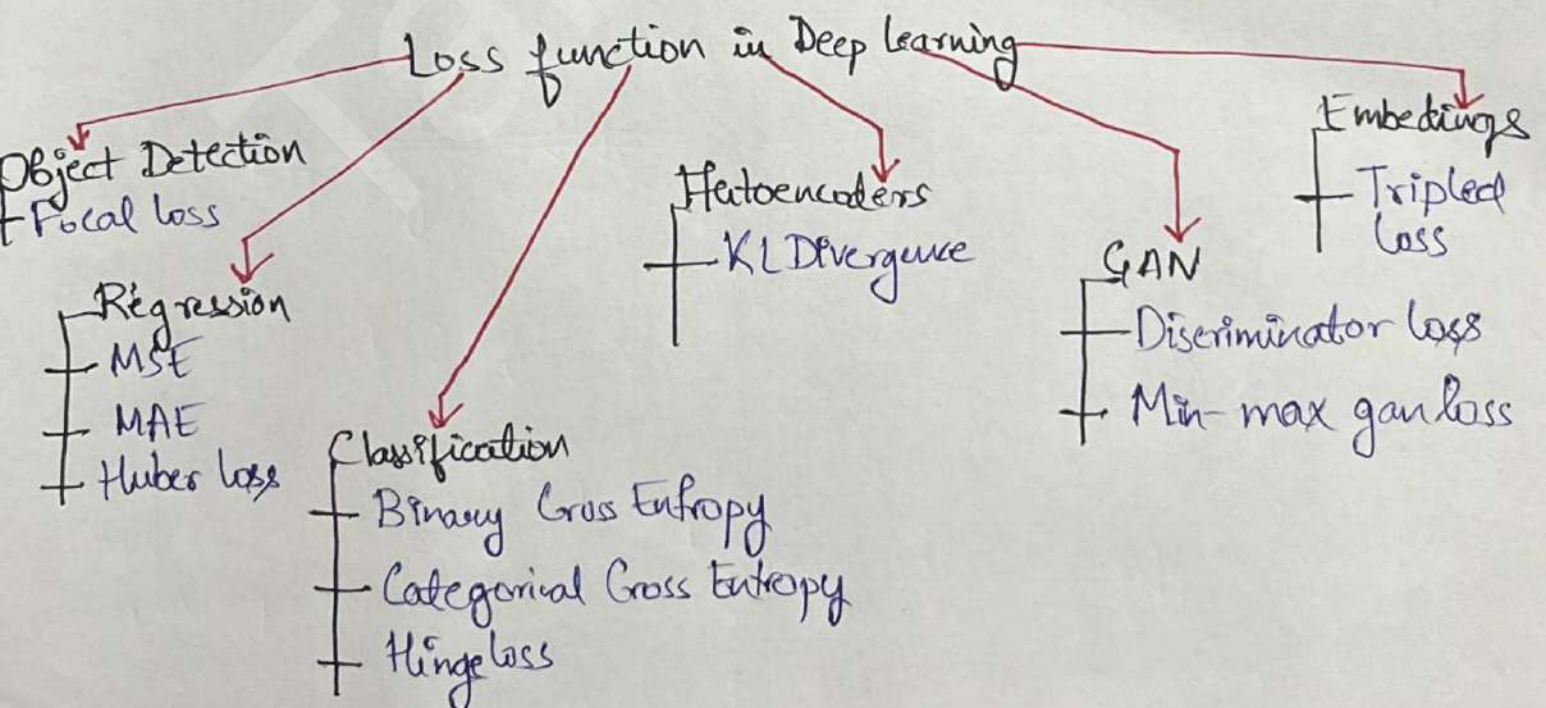 Loss function in Deep learning
Object Detection
Focal loss
Regression
MSE
MAE
Huber loss
Classification
Binary Cross Entropy
Categorical Cross Entropy
Hinge loss
Hutoencoders
KL Divergence
GAN
Discriminator loss
Min-max gan loss
Embedings
Tripled
Loss